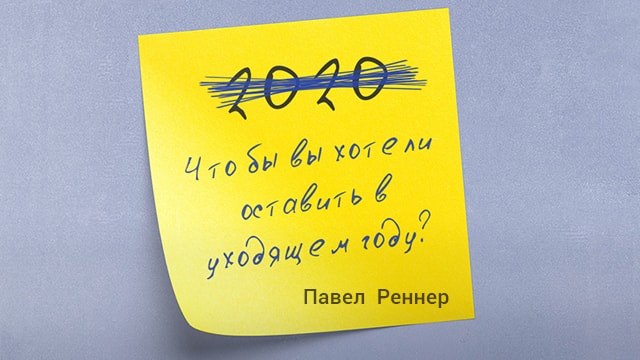 2020
Что бы вы хотели
оставить в
уходящем году?
Павел Реннер